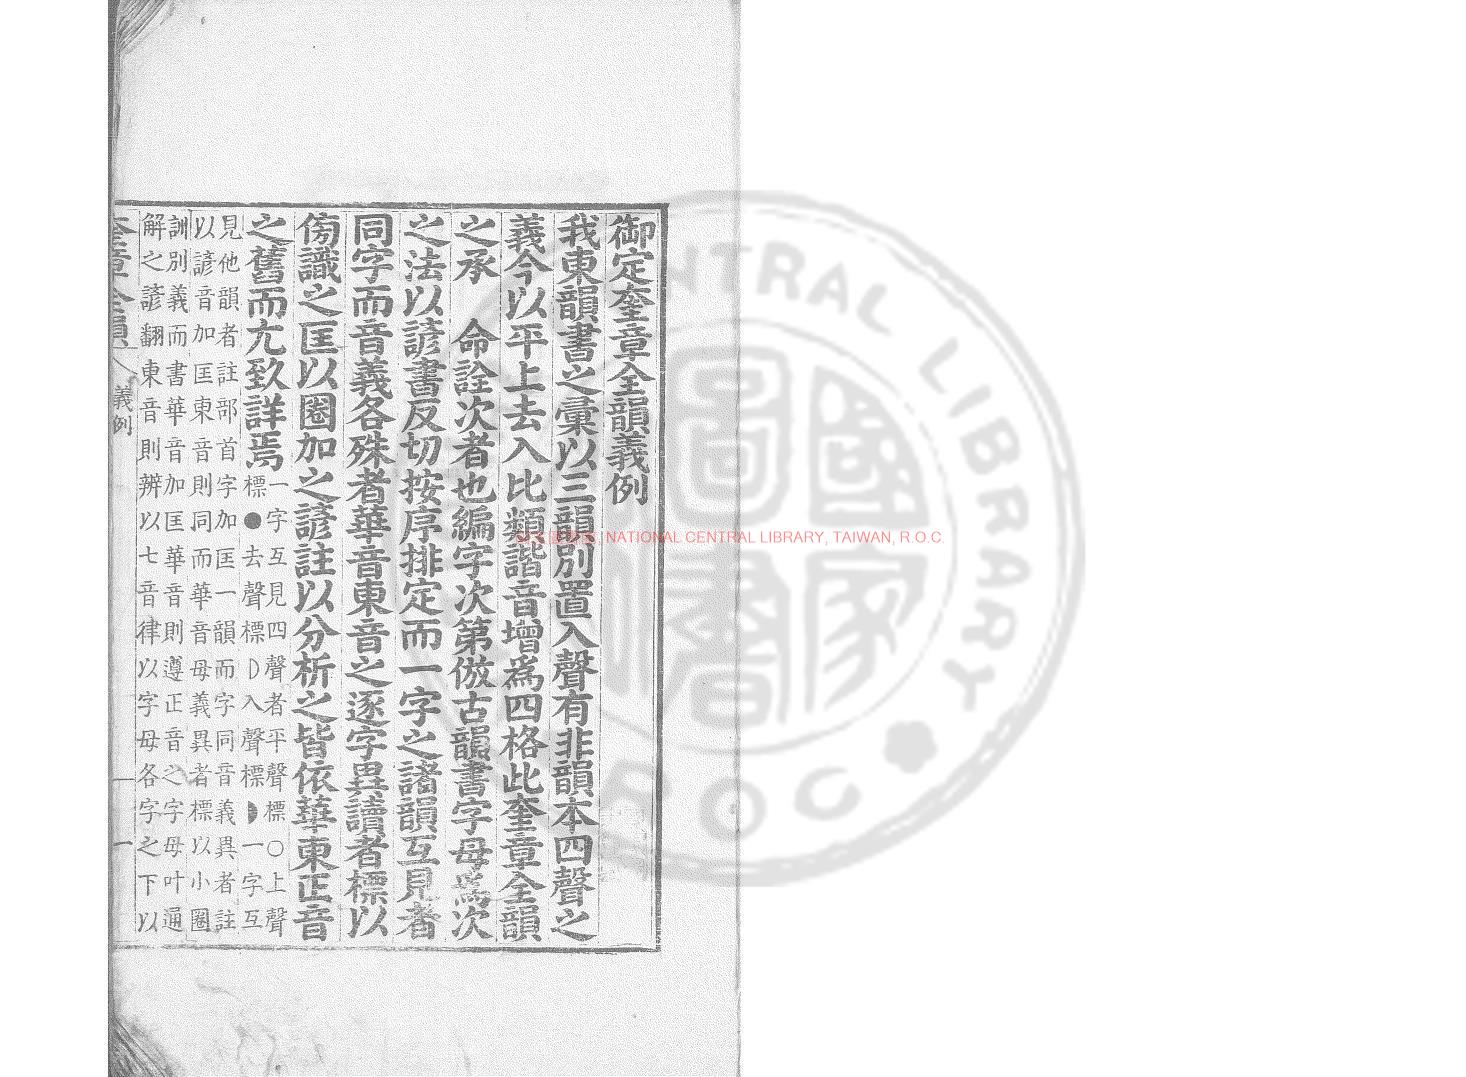 御定奎章全韻義例
我東韻書之彙以三韻別置入聲有非韻本四聲之
義今以平上去入比類諧音增爲四格此奎章全韻
之承　命詮次者也編字次第倣古韻書字母爲次
之法以諺書反切按序排定而一字之諸韻互見者
同字而音義各殊者華音東音之逐字異讀者標以
傍識之匡以圈加之諺註以分析之皆依華東正音
之舊而尤致詳焉
一字互見四聲者平聲標○上聲
標●去聲標☽入聲標◗一字互
見他韻者註部首字加匡一韻而字同音義異者註
以諺音加匡東音則同而華音母義異者標以小圈
訓別義而書華音加匡華音則遵正音之字母叶通
解之諺翻東音則辨以七音律以字母各字之下以
奎章全韻
義例
一
NATIONAL CENTRAL LIBRARY, TAIWAN, R.O.C.
CENTRAL LIBRARY
ROC
國家圖書